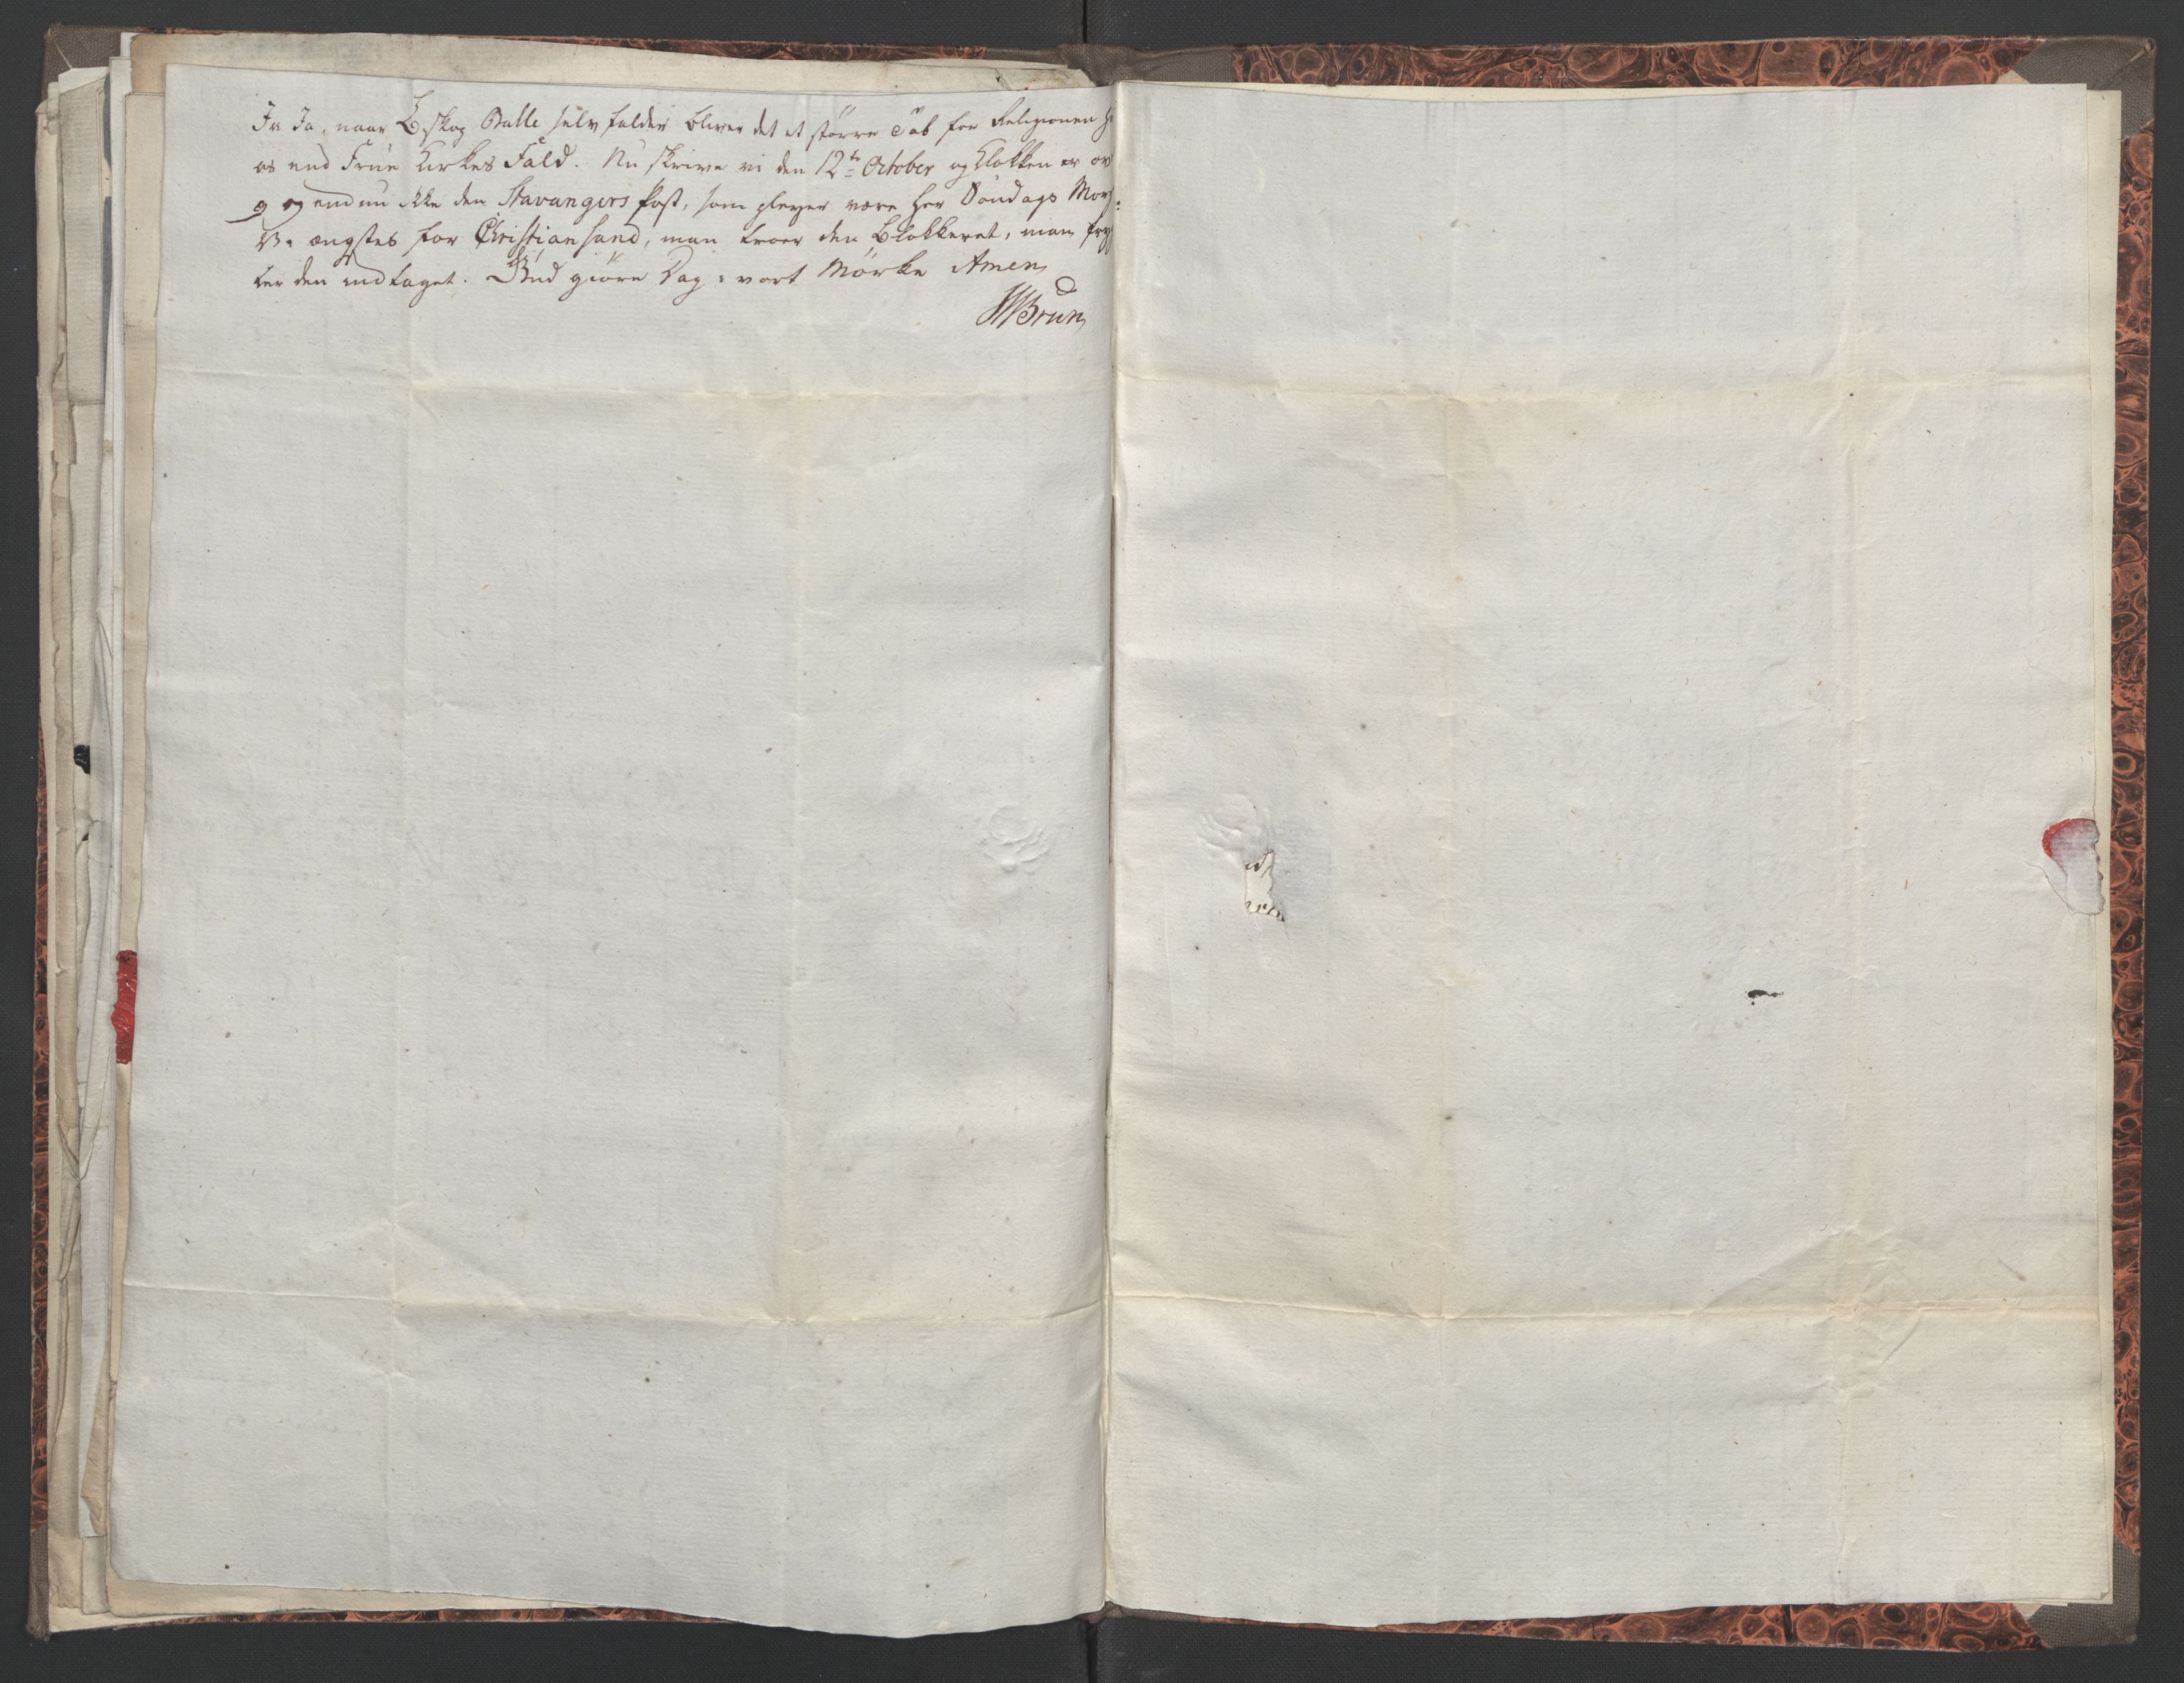 Ja Ja, naar Biskop Balle selv falder bliver det et större Tab for Religionen h
os end Frue Kirkes Fald. Nu skrive vi den 12te October og Klokken er ov
9 og endnu ikke den Stavangers Post, som pleyer være her Söndags Morg:
Vi ængstes for Christiansand, man troer den Blokkeret, man fryg
ter den indtaget. Gud giöre Dag i vort Mörke Amen
Brun